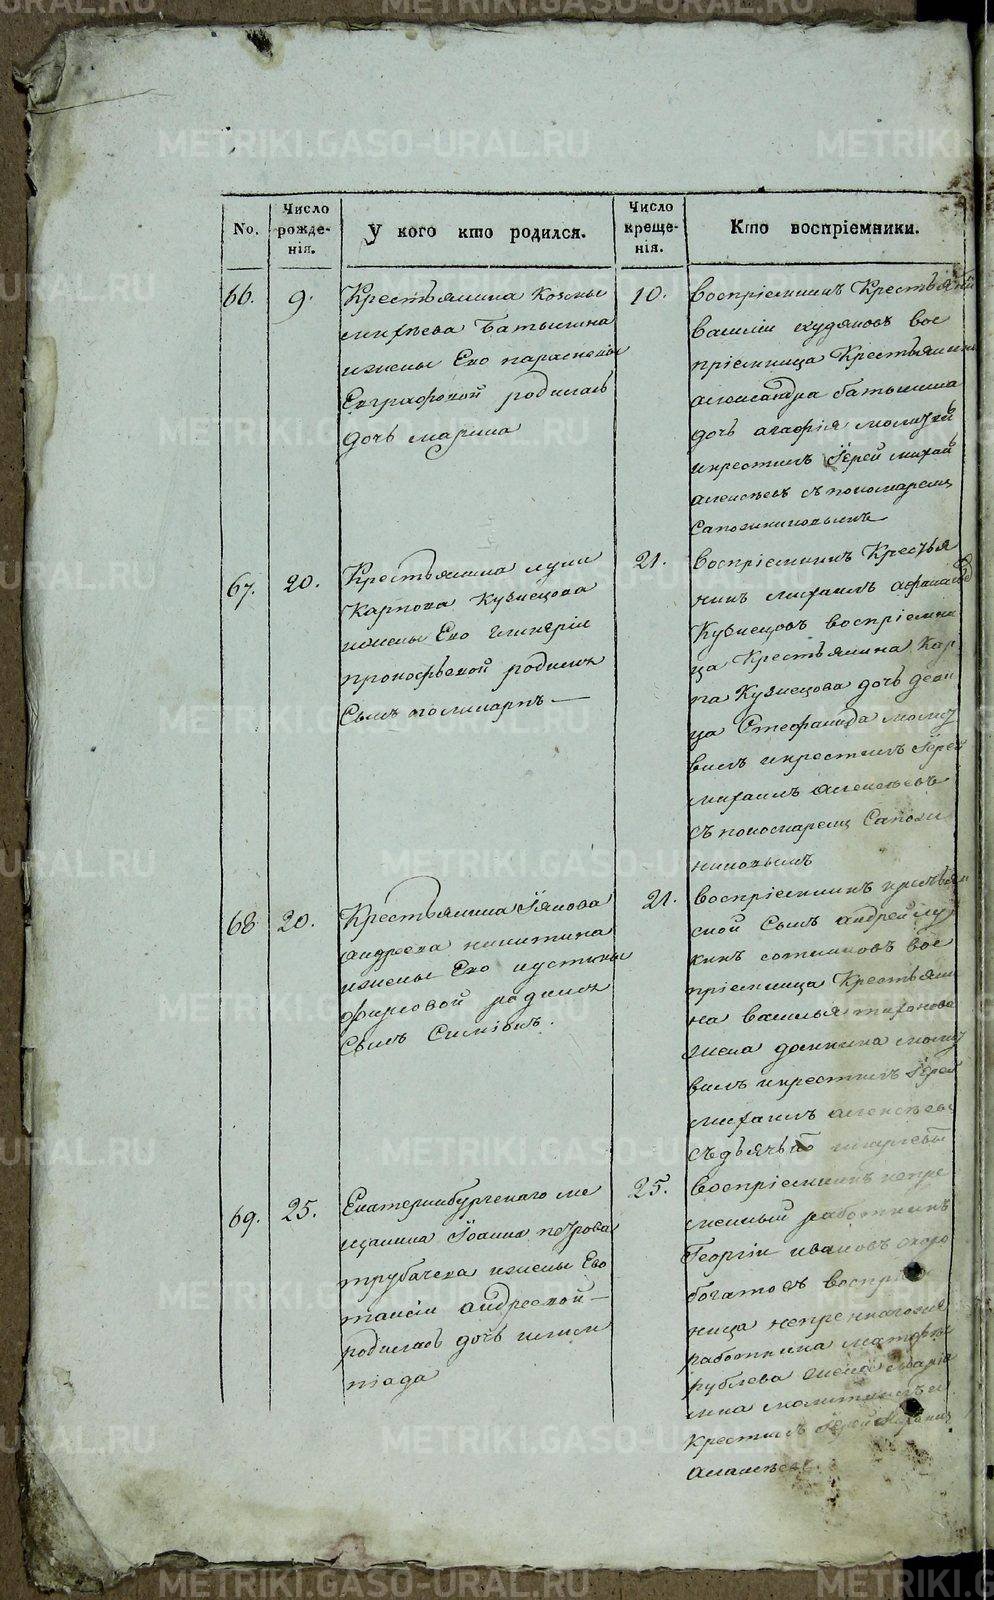 No.
Число рожде-нія.
У кого кто родился.
Число креще-нія.
Кто воспріемники.
66.
9.
Крестьянина Козмы
Михѣева Батынина
ижены Его параскевы
Евграфовой родилась
дочь марина
10.
воспріемникъ Крестьянинъ
василіи худяковъ вос
пріемница Крестьянина
александра батынина
дочь агафія
икрестилъ Іерей михаилъ
алексѣевъ съ пономаремъ
Сапожниковымъ
67.
20.
Крестьянина луки
Карпова Кузнецова
ижены Его гликеріи
прокофьевой родился
Сынъ
21.
воспріемникъ Крестья
нинъ михаилъ
Кузнецовъ воспріемни
ца Крестьянина Кар
па Кузнецова дочь деви
ца Стефанида молит
вилъ икрестилъ Іерей
михаилъ алексѣевъ
съ пономаремъ Сапож
никовымъ
68
20.
Крестьянина Іякова
андреева никитина
ижены Его иустины
фирсовой родился
Сынъ Симіонъ.
21.
воспріемникъ крестьян
ской Сынъ андрей лу
кинъ сотниковъ вос
пріемница Крестьяни
на василья тихонова
жена домнина молит
вилъ икрестилъ Іерей
михаилъ алексѣевъ
съдьячкомъ
69.
25.
Екатеринбургскаго ме
щанина Іоанна петрова
трубачева ижены Его
таисіи андреевой
родилась дочь олим
піада
25.
воспріемникъ непре
менный работникъ
Георгіи ивановъ скоро
богатовъ воспріем
ница непременнаго
работника
рублева жена марія
молитвилъ и
Крестилъ Іерей Михаилъ
Алексѣевъ.
METRIKI.GASO-URAL.RU